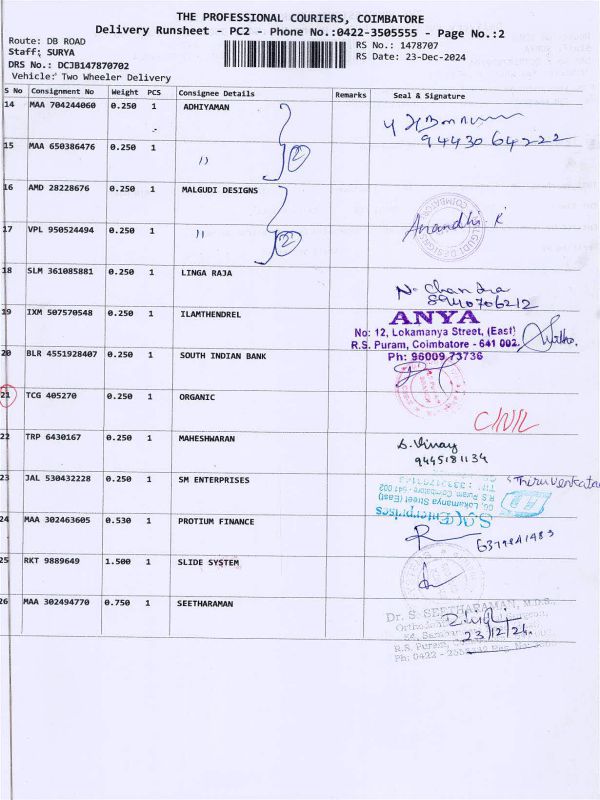 THE PROFESSIONAL COURIERS, COIMBATORE
Delivery Runsheet - PC2 - Phone No.:0422-3505555 - Page No.:2
Route: DB ROAD
Staff: SURYA
RS No.: 1478707
DRS No.: DCJB147870702
RS Date: 23-Dec-2024
Vehicle: Two Wheeler Delivery
S No Consignment No Weight PCS Consignee Details Remarks Seal & Signature
14 MAA 704244060 0.250 1 ADHIYAMAN
9443064222
15 MAA 650386476 0.250 1 " 2
16 AMD 28228676 0.250 1 MALGUDI DESIGNS
17 VPL 950524494 0.250 1 " 2 Anandhi K
18 SLM 361085881 0.250 1 LINGA RAJA N. Chandra
8940706212
19 IXM 507570548 0.250 1 ILAMTHENDREL ANYA
No: 12, Lokamanya Street, (East)
R.S. Puram, Coimbatore - 641 002.
Ph: 96009 73736
20 BLR 4551928407 0.250 1 SOUTH INDIAN BANK
21 TCG 405270 0.250 1 ORGANIC
22 TRP 6430167 0.250 1 MAHESHWARAN S. Vinay
9445181134
23 JAL 530432228 0.250 1 SM ENTERPRISES
Lokamanya Street (East)
R.S. Puram, Coimbatore - 641 002
Enterprises
24 MAA 302463605 0.530 1 PROTIUM FINANCE
25 RKT 9889649 1.500 1 SLIDE SYSTEM
26 MAA 302494770 0.750 1 SEETHARAMAN Dr. S. SEETHARAMAN, M.D.S.,
23/12/24.
R.S. Puram,
Ph: 0422 -